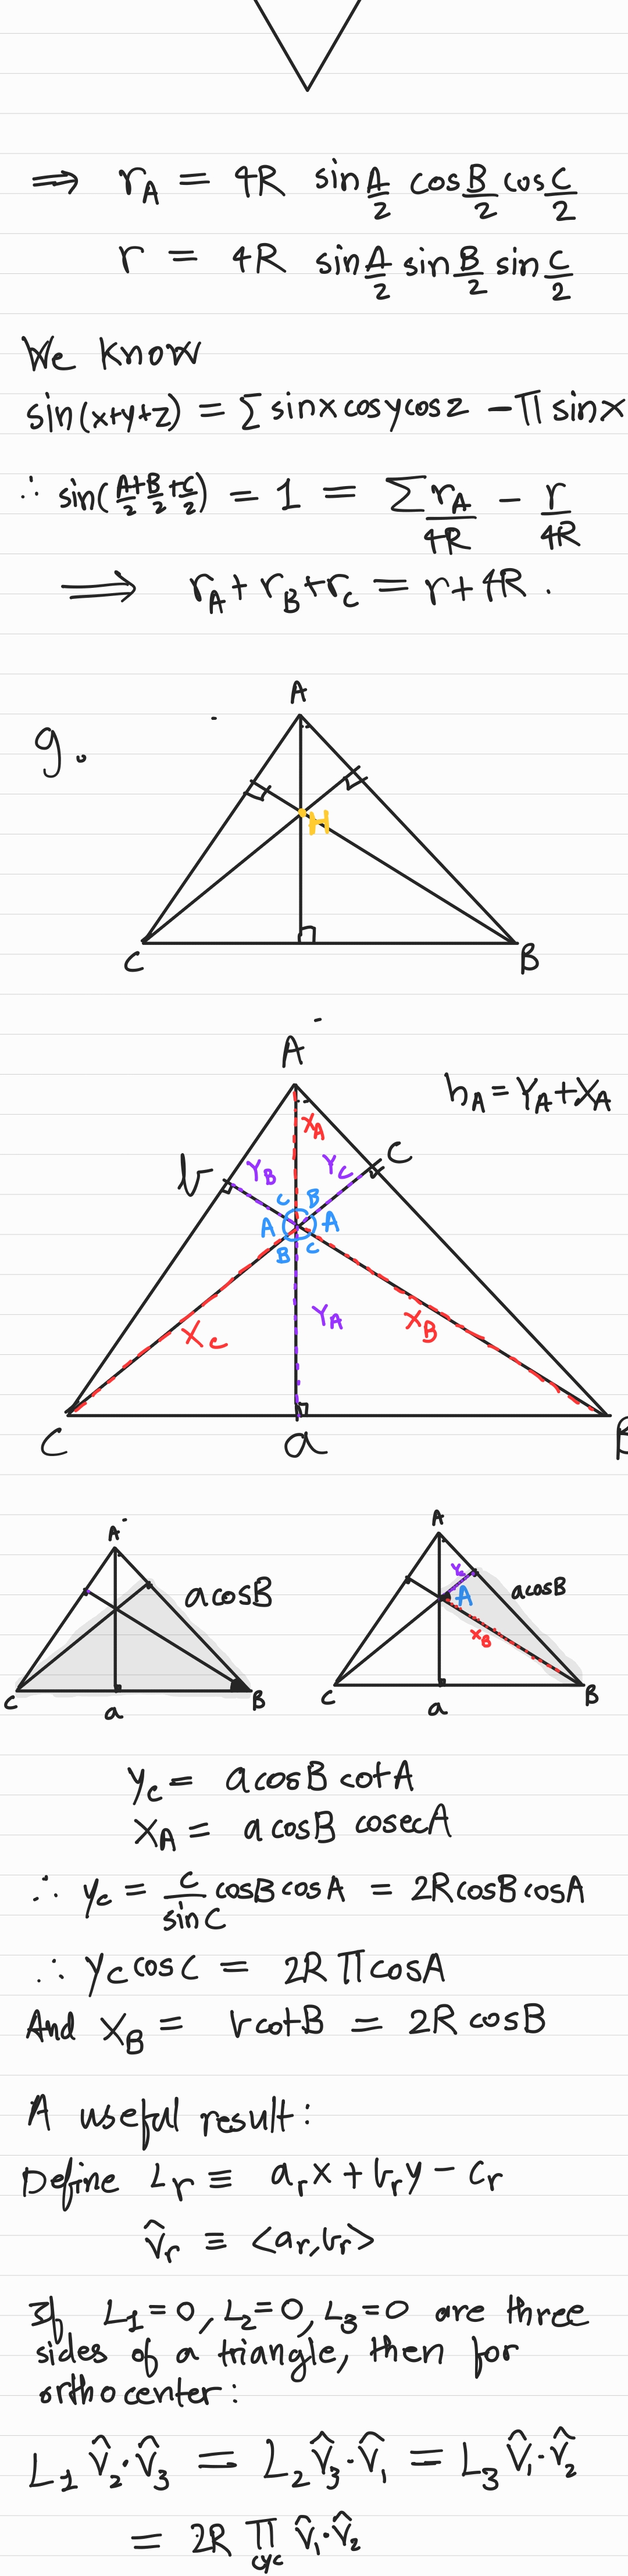 ⟹ r_A = 4R sin A/2 cos B/2 cos C/2
r = 4R sin A/2 sin B/2 sin C/2
We know
sin(x+y+z) = ∑ sinx cosy cosz − ∏ sinx
∴ sin(A/2+B/2+C/2) = 1 = ∑ r_A/4R − r/4R
⟹ r_A + r_B + r_C = r + 4R .
9.
A
H
C B
A
h_A = Y_A + X_A
b Y_B X_A Y_C c
C B
A A
B C
X_C Y_A X_B
C a B
A
a cosB
C a B
A
Y_C A a cosB
X_B
C a B
y_c = a cosB cotA
X_A = a cosB cosecA
∴ y_c = c/sinC cosB cosA = 2R cosB cosA
∴ y_c cosC = 2R ∏ cosA
And X_B = b cotB = 2R cosB
A useful result:
Define L_r ≡ a_r x + b_r y − c_r
v̂_r ≡ <a_r, b_r>
If L_1=0, L_2=0, L_3=0 are three
sides of a triangle, then for
orthocenter:
L_1 v̂_2·v̂_3 = L_2 v̂_3·v̂_1 = L_3 v̂_1·v̂_2
= 2R ∏_cyc v̂_1·v̂_2